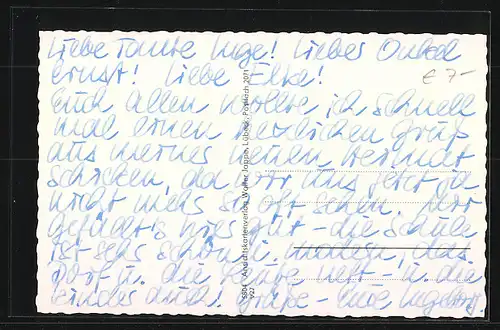 Liebe Tante Inge! Liebes Onkel
Ernst! Liebe Elke!
€ 7-
Euch allen wollte ich schnell
mal einen herzlichen Gruß
aus meiner neuen Heimat
schicken, da wir uns jetzt ja
nicht mehr so oft sehen. Mir
gefällt's hier gut - die Schule
ist sehr schön u. modern, das
Dorf u. die Leute nett - u. die
Kinder auch! Grüße - Eure
Ansichtskartenverlag Walter Jappe, Lübeck, Postfach 2071